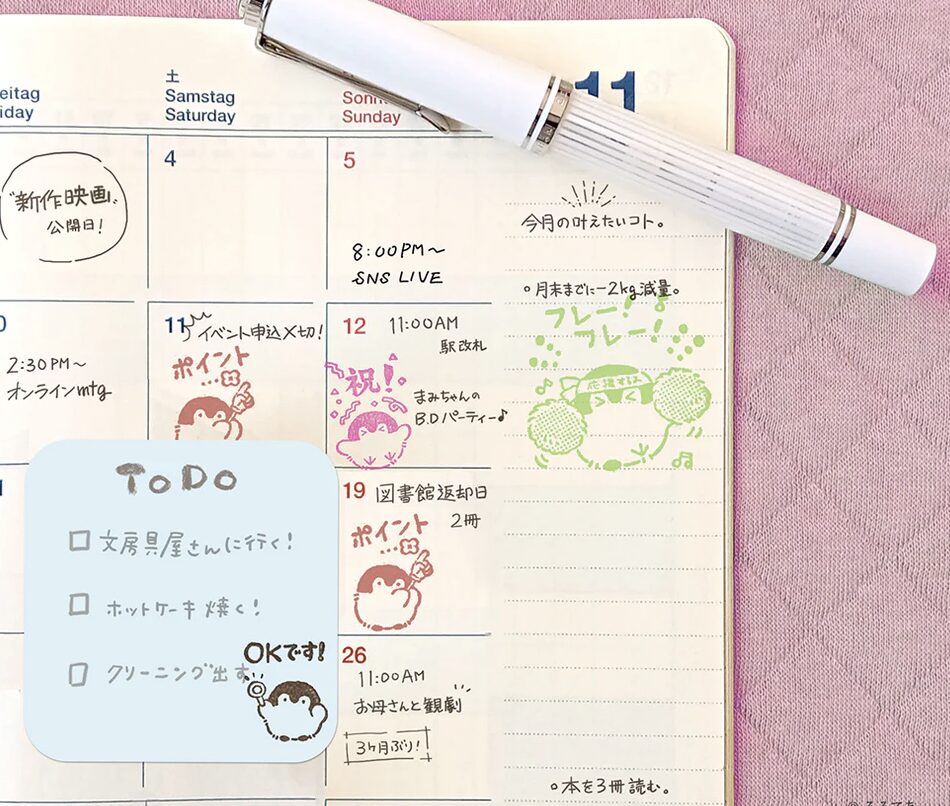 eitag
iday
土
Samstag
Saturday
Sonn
Sunday
11
"新作映画"
公開日!
4
5
8:00PM~
SNS LIVE
今月の叶えたいコト。
○月末までに-2kg減量。
フレー!
フレー!
応援するス
0
2:30PM~
オンラインmtg
11
イベント申込〆切!
ポイント
12
11:00AM
駅改札
祝!
まみちゃんの
B.Dパーティー♪
ToDo
□ 文房具屋さんに行く!
□ ホットケーキ焼く!
□ クリーニング出す
OKです!
19
図書館返却日
2冊
ポイント
26
11:00AM
お母さんと観劇
3ヶ月ぶり!
○本を3冊読む。